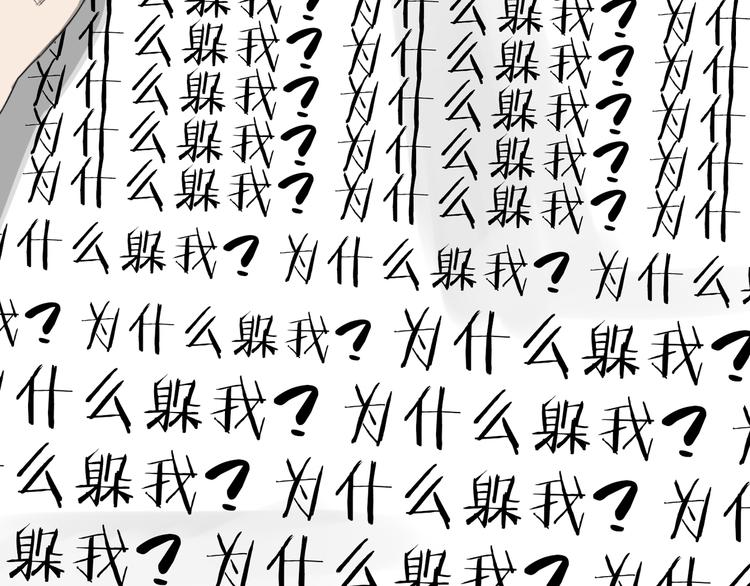 什么躲我? 为什么躲我? 为什
为什么躲我? 为什么躲我? 为什
为什么躲我? 为什么躲我? 为什
为什么躲我? 为什么躲我? 为什
为什么躲我? 为什么躲我? 为什
什么躲我? 为什么躲我? 为什么
我? 为什么躲我? 为什么躲我?
什么躲我? 为什么躲我?
么躲我? 为什么躲我? 为什
躲我? 为什么躲我? 为什